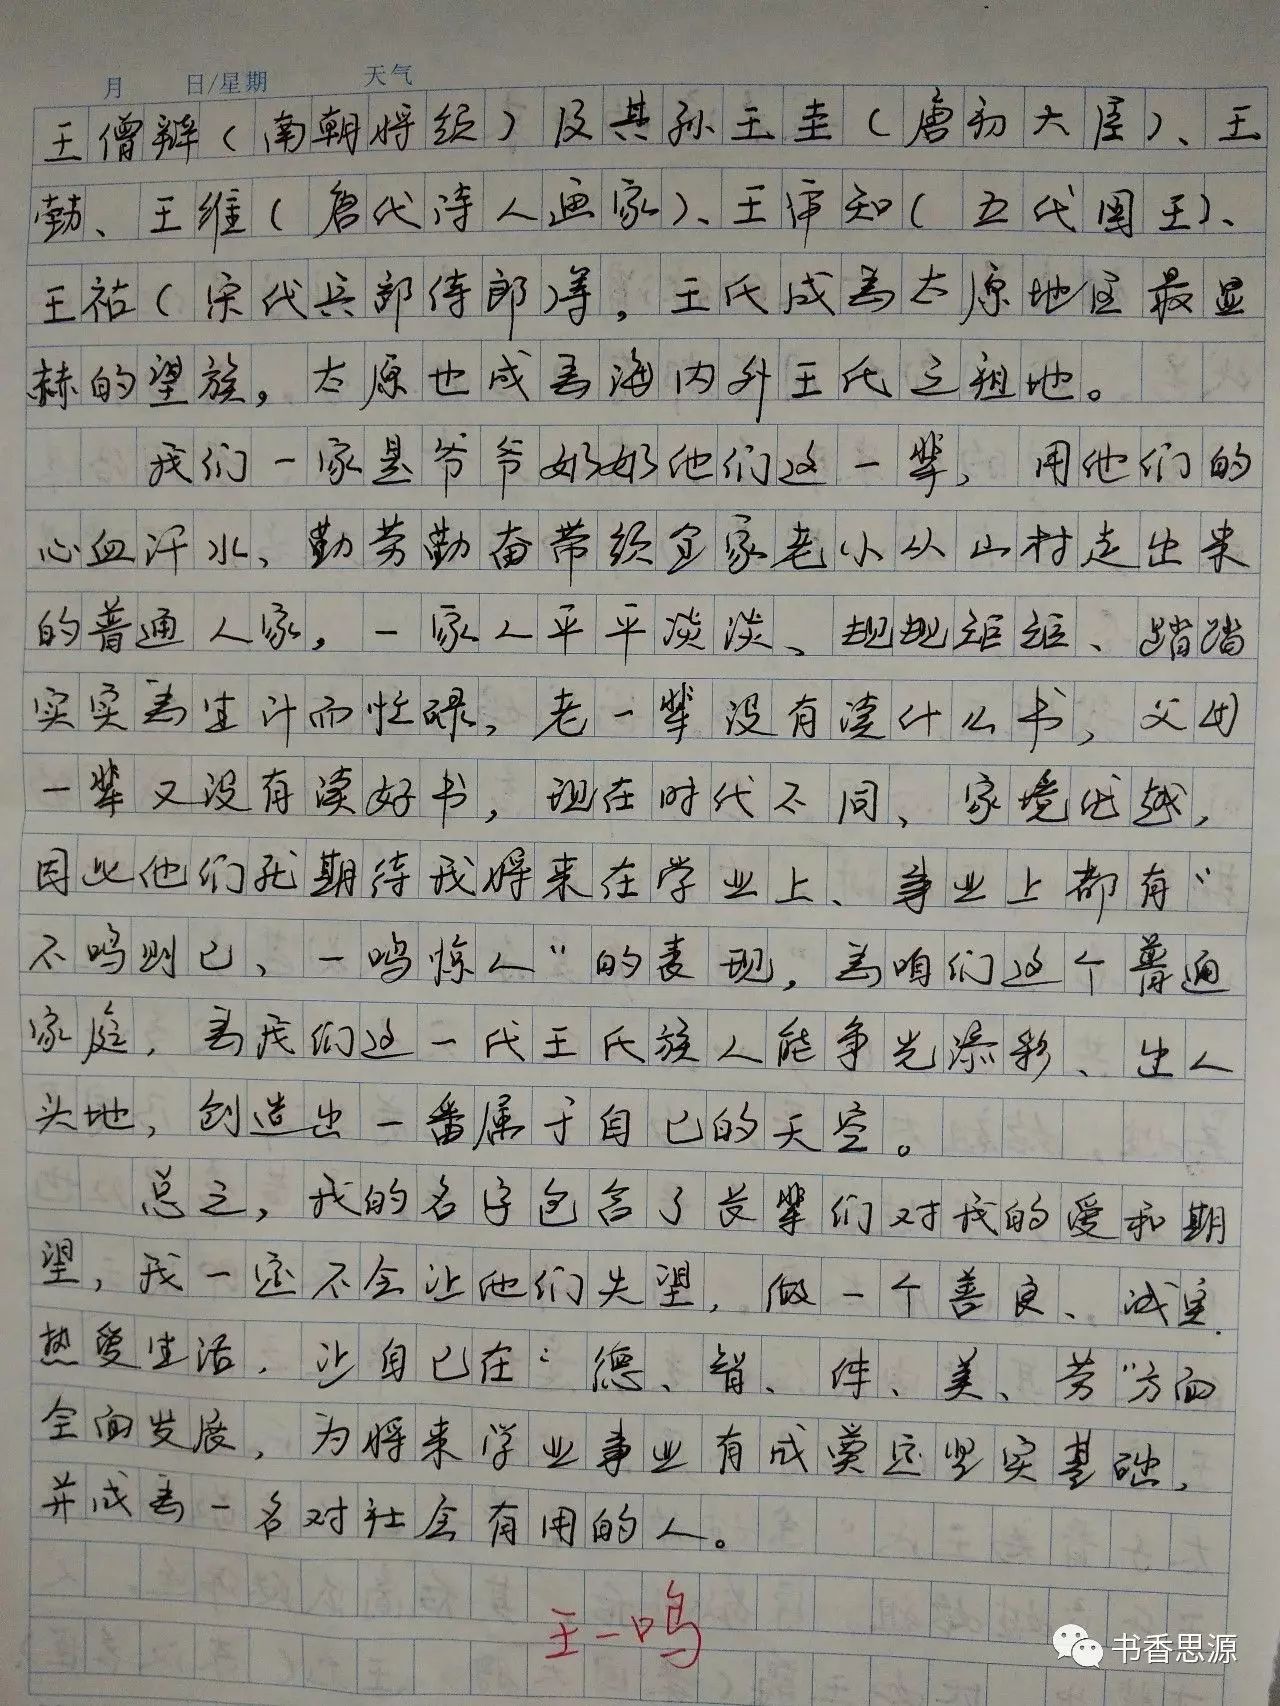 月 日/星期 天气
王僧辩(南朝将领)及其孙王圭(唐初大臣)、王
勃、王维(唐代诗人画家)、王审知(五代国王)、
王祐(宋代兵部侍郎)等,王氏成为太原地区最显
赫的望族,太原也成为海内外王氏之祖地。
我们一家是爷爷奶奶他们这一辈,用他们的
心血汗水、勤劳勤奋带领全家老小从山村走出来
的普通人家,一家人平平淡淡、规规矩矩、踏踏
实实为生计而忙碌,老一辈没有读什么书,父母
一辈又没有读好书,现在时代不同、家境优越,
因此他们就期待我将来在学业上、事业上都有“
不鸣则已、一鸣惊人”的表现,为咱们这个普通
家庭,为我们这一代王氏族人能争光添彩、出人
头地,创造出一番属于自己的天空。
总之,我的名字包含了长辈们对我的爱和期
望,我一定不会让他们失望,做一个善良、诚实、
热爱生活,让自己在“德、智、体、美、劳”方面
全面发展,为将来学业事业有成奠定坚实基础,
并成为一名对社会有用的人。
王一鸣
书香思源